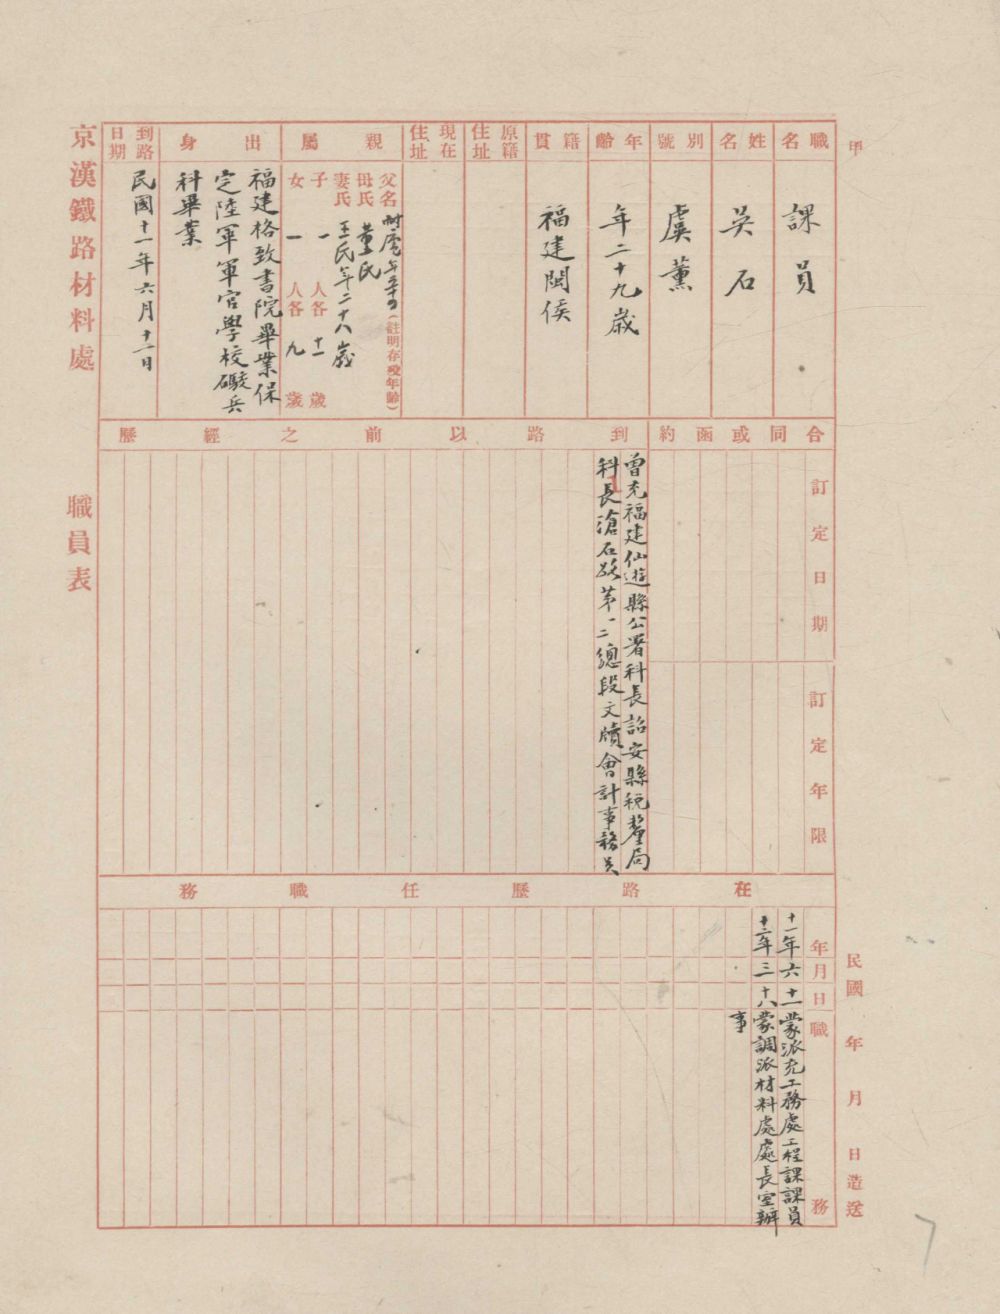 甲
職名
課員
姓名
吳石
別號
虞薰
年齡
年二十九歲
籍貫
福建閩侯
原籍住址
現在住址
親屬
父名 耐虞 年五十四（註明存歿年齡）
母氏 董氏
妻氏 王氏年二十八歲
子 一人各十一歲
女 一人各九歲
出身
福建格致書院畢業保
定陸軍軍官學校礮兵
科畢業
到路日期
民國十一年六月十一日
京漢鐵路材料處 職員表
合同或函約
訂定日期
訂定年限
到路以前之經歷
曾充福建仙遊縣公署科長詔安縣稅釐局
科長滄石路第一二總段文牘會計事務員
在路歷任職務
年月日 職務
十一年六 十一 蒙派充工務處工程課課員
十二年三 十八 蒙調派材料處處長室辦
事
民國 年 月 日造送
7